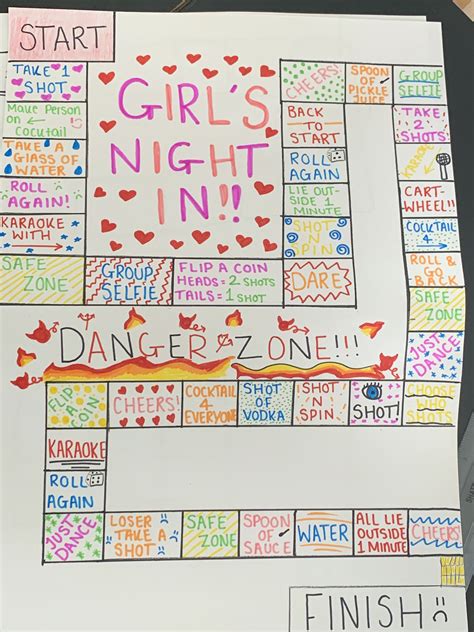 START
TAKE 1
SHOT
Make Person
on ←
Cocktail
TAKE A
GLASS OF
WATER
ROLL
AGAIN!
KARAOKE
WITH →
SAFE
ZONE
GROUP
SELFIE
FLIP A COIN
HEADS = 2 SHOTS
TAILS = 1 SHOT
DARE
SHOT
N
SPIN
LIE OUT-
SIDE 1
MINUTE
ROLL
AGAIN
BACK
TO
START
CHEERS!
SPOON
OF
PICKLE
JUICE
GROUP
SELFIE
TAKE
2
SHOTS
KARAOKE
CART-
WHEEL!!
COCKTAIL
4 →
ROLL &
GO
BACK
SAFE
ZONE
JUST
DANCE
CHOOSE
WHO
SHOTS
SHOT!
SHOT
N
SPIN
SHOT
OF
VODKA
COCKTAIL
4
EVERYONE
CHEERS!
FLIP
A
COIN
KARAOKE
ROLL
AGAIN
JUST
DANCE
LOSER
TAKE A
SHOT
SAFE
ZONE
SPOON
OF
SAUCE
WATER
ALL LIE
OUTSIDE
1 MINUTE
CHEERS
FINISH
GIRL'S
NIGHT
IN!!
DANGER ZONE!!!